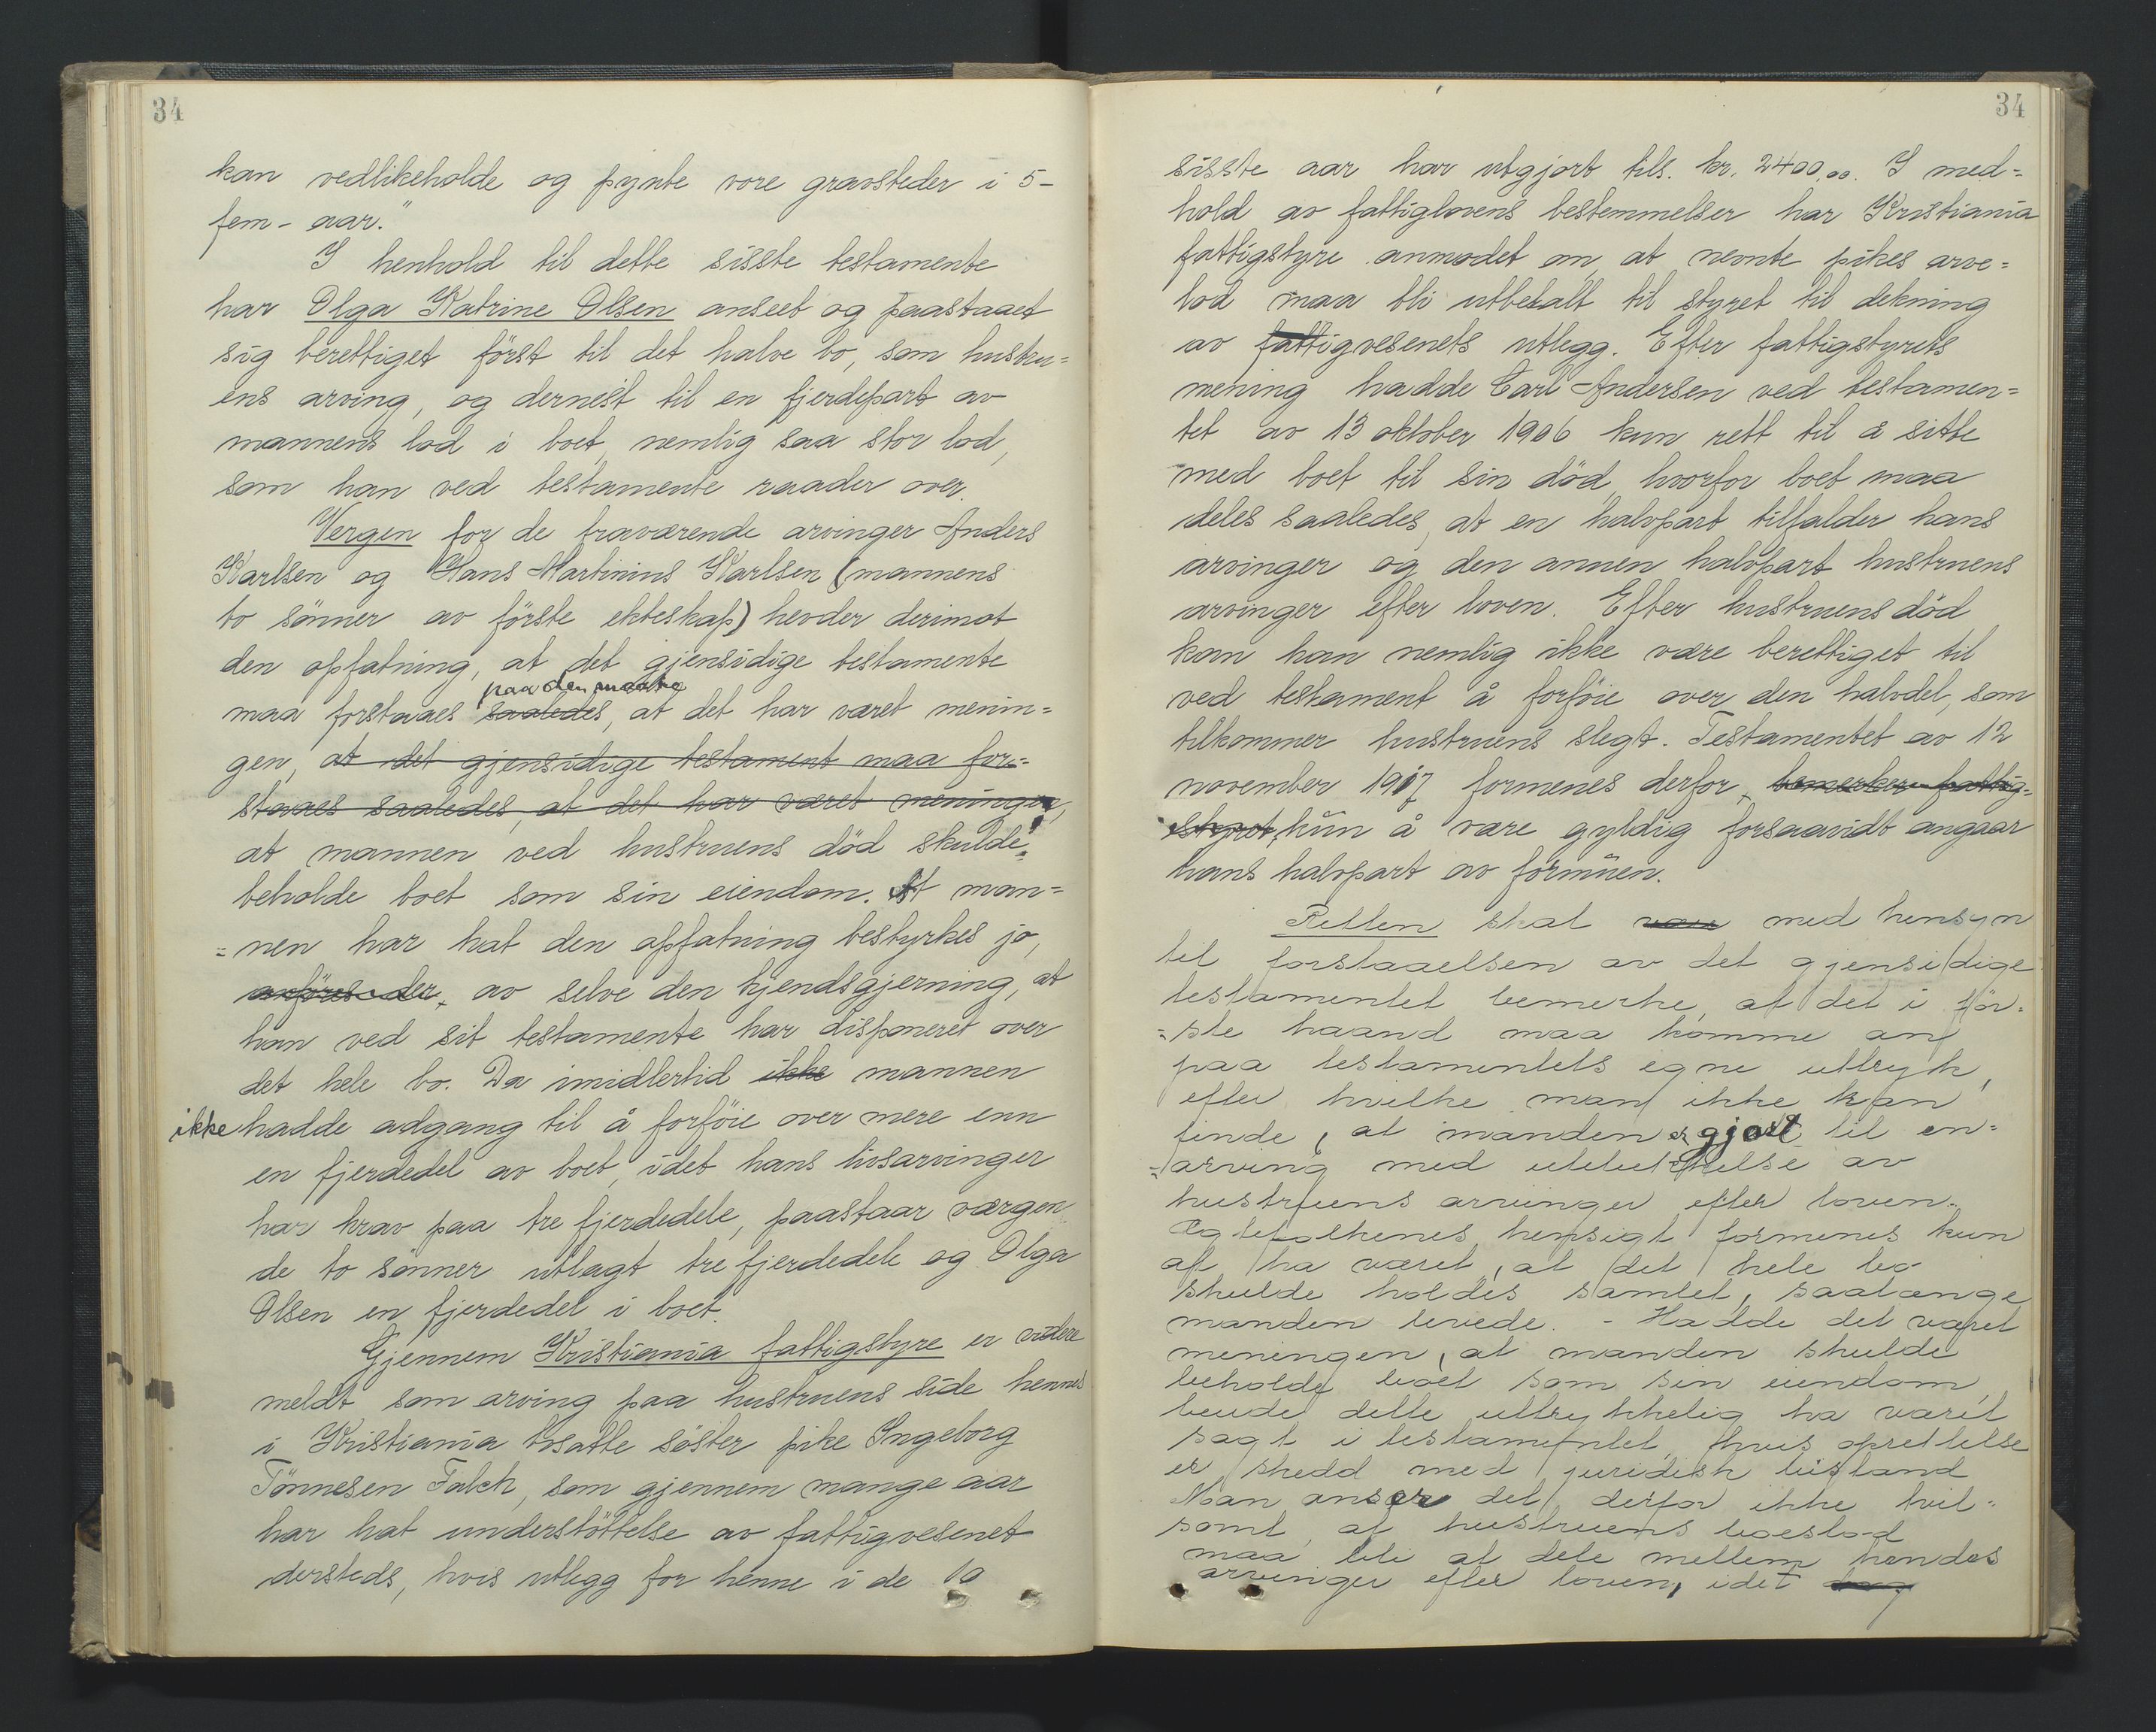 34
kan vedlikeholde og pynte vore gravsteder i 5-
fem- aar."
I henhold til dette sisste testamente
har Olga Katrine Olsen anseet og paastaaet
sig berettiget först til det halve bo, som hustru=
ens arving, og dernest til en fjerdepart av
mannens lod i boet, nemlig saa stor lod,
som han ved testamente raader over.
Vergen for de fraværende arvinger Anders
Karlsen og Hans Martinius Karlsen (mannens
to sönner av förste ekteskap) hevder derimot
den opfatning, at det gjensidige testamente
paa den maate
maa forstaaes saaledes, at det har været menin=
gen, at det gjensidige testament maa for=
staaes saaledes, at det har været meningen,
at mannen ved hustruens död skulde
beholde boet som sin eiendom. At man=
=nen har hat den opfatning bestyrkes jo,
anföres der, av selve den kjendsgjerning, at
han ved sit testamente har disponeret over
det hele bo. Da imidlertid ikke mannen
ikke hadde adgang til å forföie over mere enn
en fjerdedel av boet, idet hans livsarvinger
har krav paa tre fjerdedele, paastaar værgen
de to sönner utlagt tre fjerdedele og Olga
Olsen en fjerdedel i boet.
Gjennem Kristiania fattigstyre er videre
meldt som arving paa hustruens side hennes
i Kristiania bosatte söster pike Ingeborg
Tönnesen Falch, som gjennem mange aar
har hat understöttelse av fattigvesenet
dersteds, hvis utlegg for henne i de 10
34
sisste aar har utgjort tils. kr. 2400,00. I med=
hold av fattiglovens bestemmelser har Kristiania
fattigstyre anmodet om, at nevnte pikes arve=
lod maa bli utbetalt til styret til dekning
av fattigvesenets utlegg. Efter fattigstyrets
mening hadde Carl Andersen ved testamen=
tet av 13 oktober 1906 kun rett til å sitte
med boet til sin död, hvorfor boet maa
deles saaledes, at en halvpart tilfalder hans
arvinger og den annen halvpart hustruens
arvinger efter loven. Efter hustruens död
kan han nemlig ikke være berettiget til
ved testament å forföie over den halvdel, som
tilkommer hustruens slegt. Testamentet av 12
november 1917 formenes derfor, bemerker fattig=
styret, kun å være gyldig forsaavidt angaar
hans halvpart av formuen.
Retten skal med hensyn
til forstaaelsen av det gjensidige
testamentet bemerke, at det iför=
=ste haand maa komme an
paa testamentets egne uttryk,
efter hvilke man ikke kan
finde, at manden er gjort til en=
=arving med utelukkelse av
hustruens arvinger efter loven.
Egtefolkenes hensigt formenes kun
at ha været, at det hele bo
skulde holdes samlet, saalænge
manden levede. - Hadde det været
meningen, at manden skulde
beholde boet som sin eiendom,
burde dette uttrykkelig ha været
sagt i testamentet, hvis oprettelse
er skedd med juridisk bistand
Man anser det derfor ikke tvil=
somt, at hustruens boeslod
maa bli at dele mellem hendes
arvinger efter loven, idet